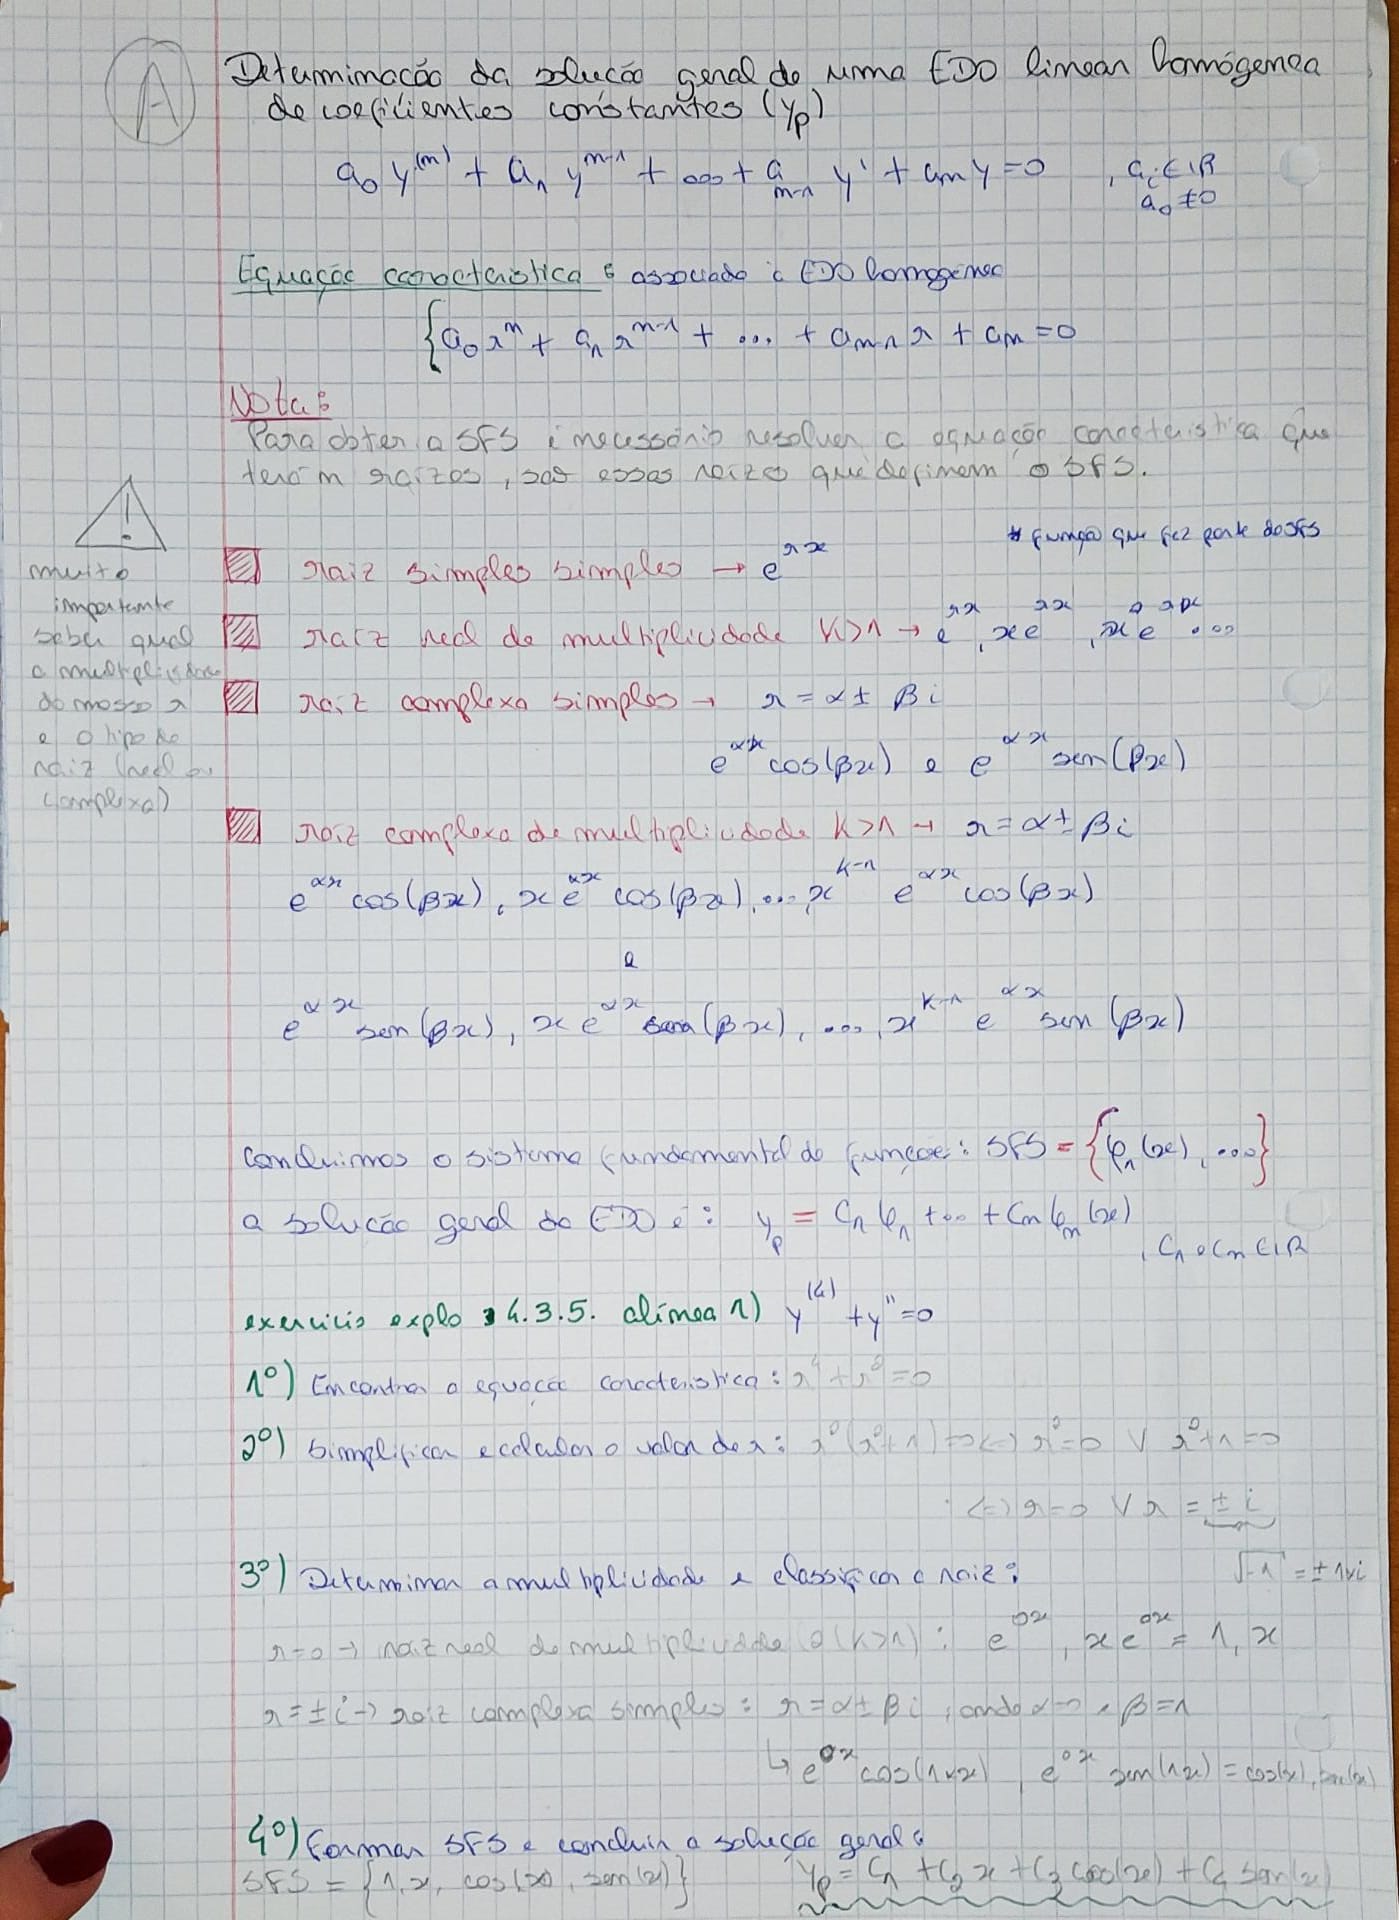 A
Determinação da solução geral de uma EDO linear homógenea
de coeficientes constantes (yp)
a₀ y⁽ⁿ⁾ + a₁ yⁿ⁻¹ + ... + aₙ₋₁ y' + aₙ y = 0 , aᵢ ∈ ℝ
a₀ ≠ 0
Equação característica: associada à EDO homogénea
{a₀ rⁿ + a₁ rⁿ⁻¹ + ... + aₙ₋₁ r + aₙ = 0
Nota:
Para obter a SFS é necessário resolver a equação característica que
terá n raízes, são essas raízes que definem o SFS.
!
muito
importante
saber qual
a multiplicidade
do nosso r
e o tipo de
raiz (real ou
complexa)
* função que fez parte do SFS
raiz simples simples → e^(rx)
raiz real de multiplicidade K>1 → e^(rx), xe^(rx), x²e^(rx) ...
raiz complexa simples → r = α ± βi
e^(αx) cos(βx) e e^(αx) sen(βx)
raiz complexa de multiplicidade K>1 → r = α ± βi
e^(αx) cos(βx), x e^(αx) cos(βx), ..., x^(K-1) e^(αx) cos(βx)
e
e^(αx) sen(βx), x e^(αx) sen(βx), ..., x^(K-1) e^(αx) sen(βx)
Concluimos o sistema fundamental de funções: SFS = {φ₁(x), ...}
a solução geral da EDO é: yp = C₁φ₁ + ... + Cₙφₙ(x)
, C₁ e Cₙ ∈ ℝ
exercicio explo 4.3.5. alínea 1) y⁽⁴⁾ + y'' = 0
1º) Encontrar a equação característica: r⁴ + r² = 0
2º) Simplificar e calcular o valor de r: r²(r²+1)=0 <=> r²=0 ∨ r²+1=0
<=> r=0 ∨ r = ± i
√-1 = ± 1×i
3º) Determinar a multiplicidade e classificar a raiz:
r=0 → raiz real de multiplicidade 2 (K>1): e^(0x), xe^(0x) = 1, x
r=±i → raiz complexa simples: r = α ± βi, onde α=0 e β=1
↳ e^(0x) cos(1×x), e^(0x) sen(1x) = cos(x), sen(x)
4º) Formar SFS e concluir a solução geral:
SFS = {1, x, cos(x), sen(x)} yp = C₁ + C₂ x + C₃ cos(x) + C₄ sen(x)